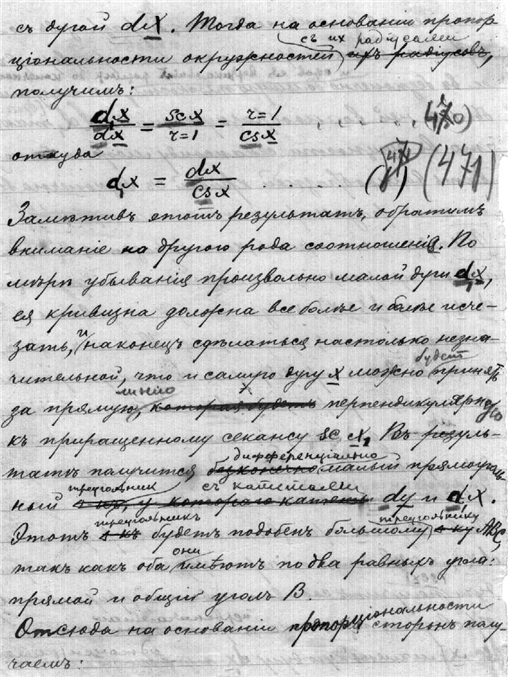 съ дугой dx. Тогда на основаніи пропор
ціональности окружностей съ их радіусами ихъ радіусовъ,
получимъ:
d₁x/dx = scx/r=1 = r=1/csx (470)
откуда
d₁x = dx/csx (471)
Замѣтивъ этотъ результатъ, обратимъ
вниманіе на другого рода соотношенія. По
мѣрѣ убыванія произвольно малой дуги d₁x,
ея кривизна должна все болѣе и болѣе исче-
зать, и наконецъ сдѣлаться настолько незна-
чительной, что и самую дугу x можно будетъ принять
за прямую линію которая будетъ перпендикулярную
къ приращенному секансу sc x₁. Въ резуль-
татѣ получится безконечно дифференціально малый прямоуголь-
ный треугольник съ катетами dy и dx.
Этотъ треугольникъ будетъ подобенъ большому треугольнику
такъ какъ оба они имѣютъ по два равныхъ угла:
прямой и общій уголъ В.
Отсюда на основаніи пропорціональности сторонъ полу-
чаемъ: